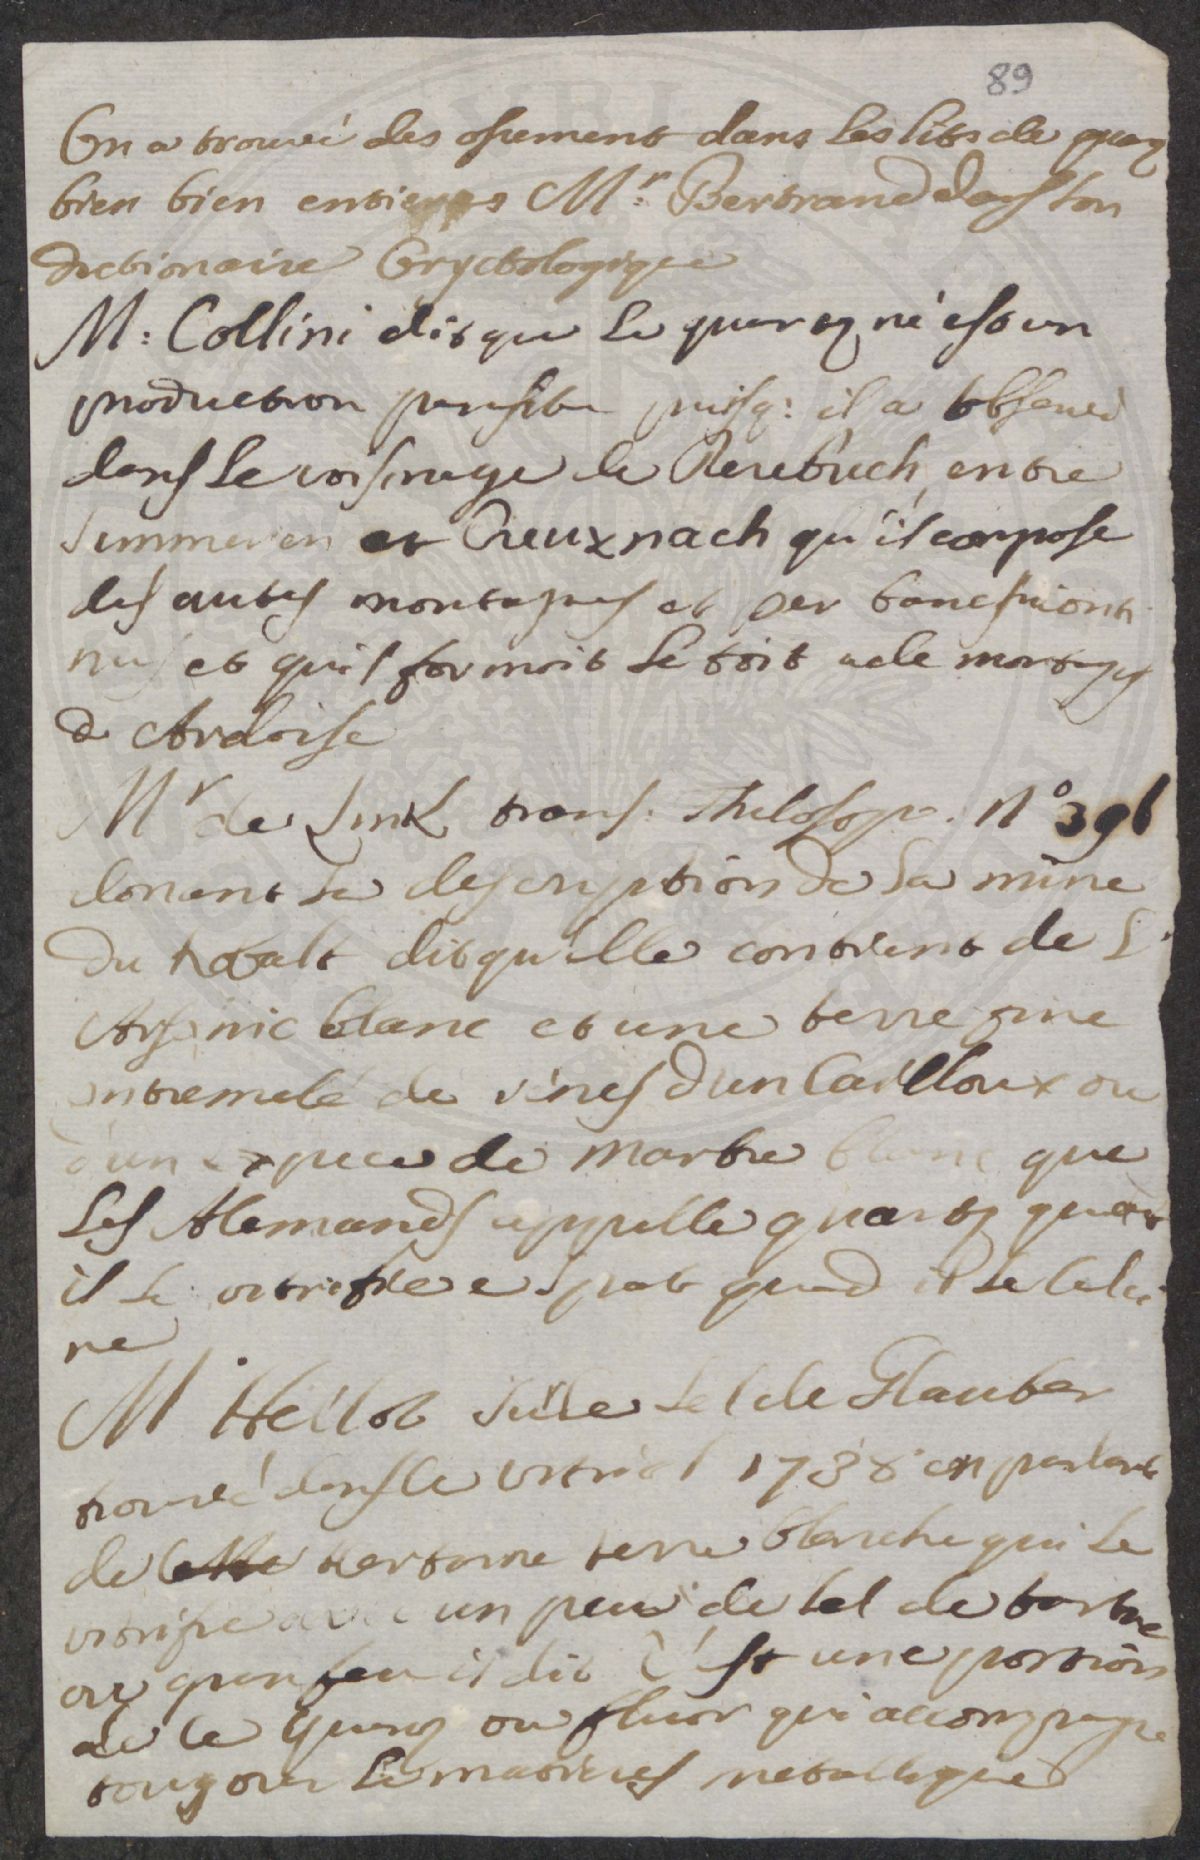 89
On a trouvé des ossement dans les lits de quarz
bien bien entieres Mr: Bertrand dans son
dictionaire Oryctologique
M: Collini dit que le quartz ne est un
production parasite puisq: il a observé
dans le voisinage de entre
Simmeren et Creuxnach qu'il compose
des autes montagnes et par bancs conti
nus et qu'il formoit le toit de montagnes
d Ardoise
Mr de Link trans. Philosop. No 396
donant la descryption de la mine
du Kobalt dit qu'elle contient de L'
Arsenic blanc et une terre fine
entremelé de vines d'un Cailloux ou
d'un expece de marbre blanc que
Les Alemands appelle quartz quant
il se vitrifie e spat quand il se calci
ne
M Hellot sur le sel de Glauber
trouvé dans le vitriol 1738 en parlant
de certaine terre blanche qui se
vitrifie avec un peu de sel de tartre
au gran feu il dit C'est une portion
de ce quarz ou fluor qui accompagne
toujours le matieres metallique